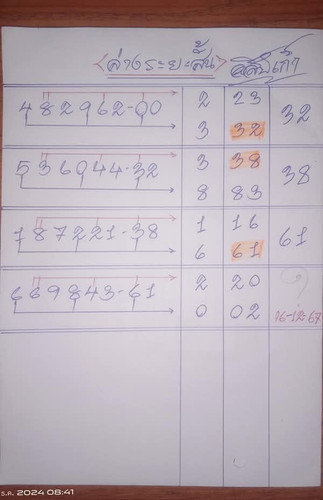 <ล่างระยะสั้น>
482962-00 2 23 32
3 32
536044-32 3 38 38
8 83
187221-38 1 16 61
6 61
669843-61 2 20 ?
0 02 16-12-67
ธ.ค. 2024 08:41